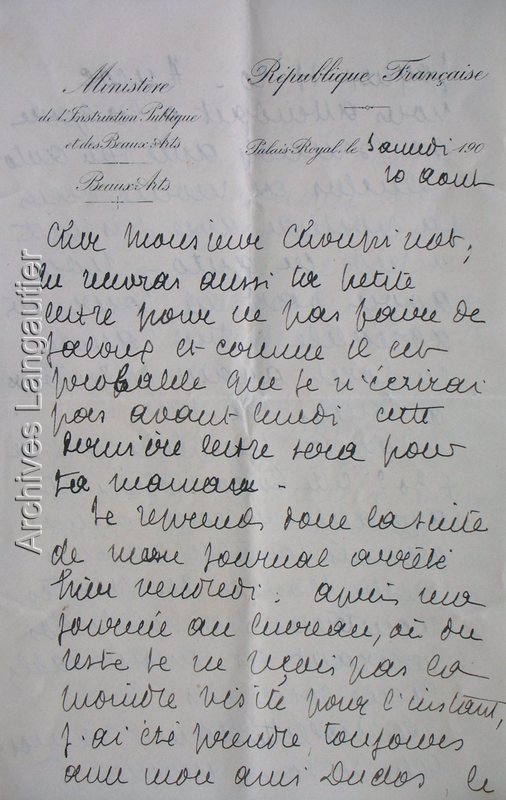 Ministère
de l'Instruction Publique
et des Beaux-Arts
Beaux-Arts
République Française
Palais-Royal, le Samedi 190
10 aout
Cher Monsieur Choupinot,
tu recevras aussi ta petite
lettre pour ne pas faire de
jaloux et comme il est
probable que je n'écrirai
pas avant lundi cette
dernière lettre sera pour
ta maman -
Je reprends donc la suite
de mon journal arrêté
hier vendredi. après ma
journée au bureau, où du
reste je ne reçois pas la
moindre visite pour l'instant,
j'ai été prendre, toujours
avec mon ami Duclos, le
Archives Langautier